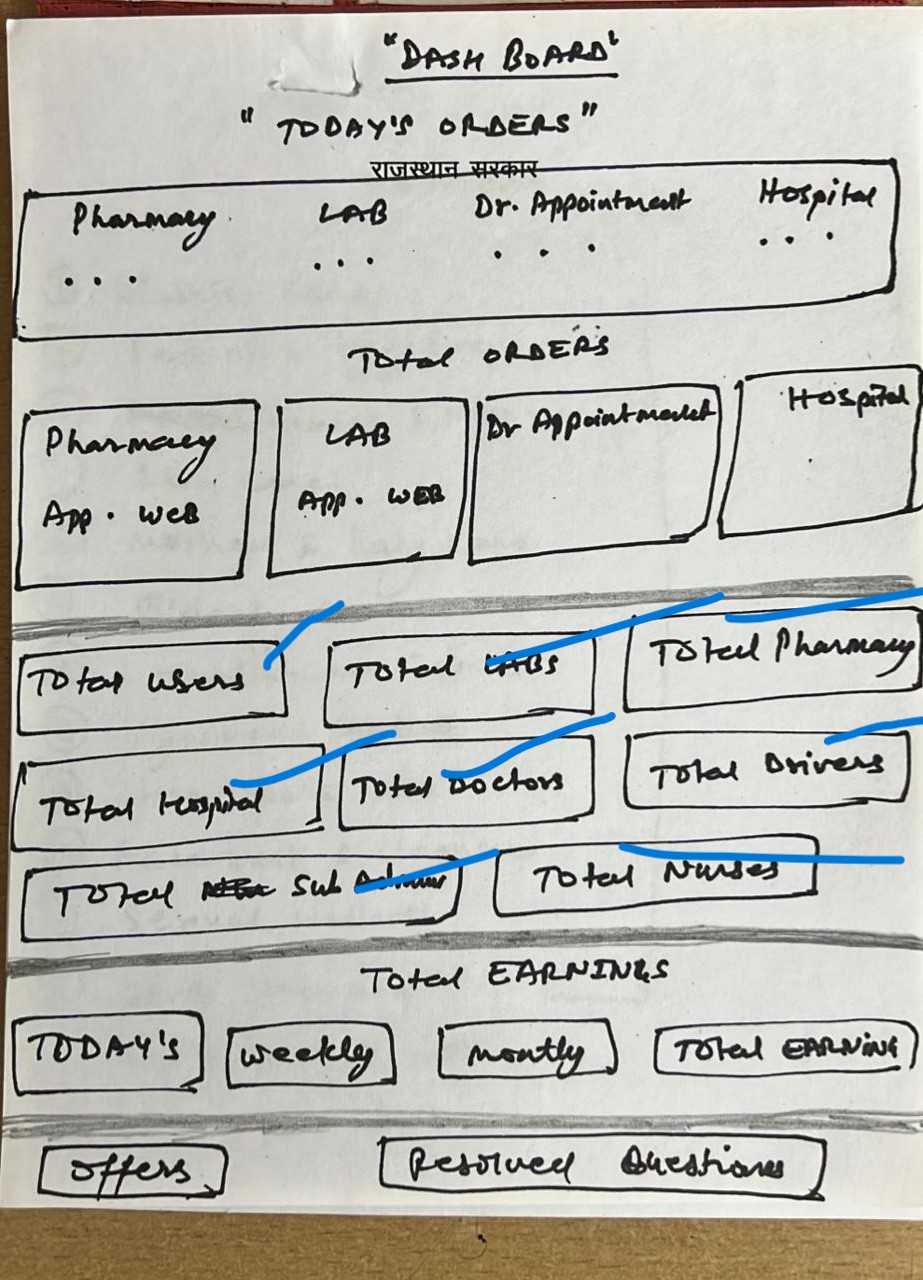 "DASH BOARD"
"TODAY'S ORDERS"
राजस्थान सरकार
Pharmacy LAB Dr. Appointment Hospital
... ... ... ...
Total ORDERS
Pharmacy LAB Dr Appointment Hospital
App. WEB App. WEB
Total Users Total LABs Total Pharmacy
Total Hospital Total Doctors Total Drivers
Total Sub Admin Total Nurses
Total EARNINGS
TODAY'S weekly montly Total EARNING
offers Resolved Questions